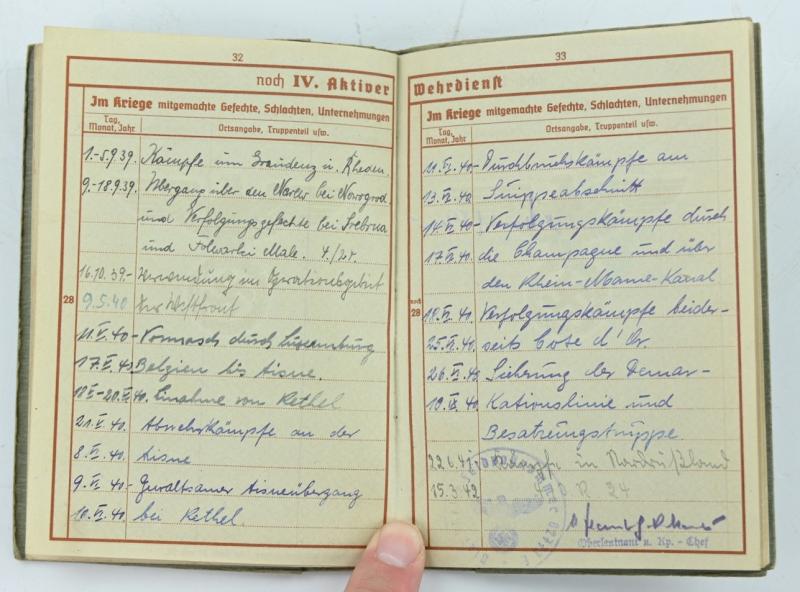 32
noch IV. Aktiver
Im Kriege mitgemachte Gefechte, Schlachten, Unternehmungen
Tag, Monat, Jahr
Ortsangabe, Truppenteil usw.
1.-5.9.39. Kämpfe um Graudenz u. Rheden.
9.-18.9.39. Übergang über den Narew bei Nowogrod
und Verfolgungsgefechte bei Srebrna
und Folwarki Male.
16.10.39.- Verwendung im Operationsgebiet
28
9.5.40 der Westfront
11.V.40- Vormarsch durch Luxemburg
17.V.40 Belgien bis Aisne.
18.V-20.V.40. Einnahme von Rethel
21.V.40. Abwehrkämpfe an der
8.VI.40. Aisne
9.VI.40.- Gewaltsamer Aisneübergang
10.VI.40. bei Rethel.
33
Wehrdienst
Im Kriege mitgemachte Gefechte, Schlachten, Unternehmungen
Tag, Monat, Jahr
Ortsangabe, Truppenteil usw.
11.VI.40- Durchbruchskämpfe am
13.VI.40 Suippeabschnitt
14.VI.40- Verfolgungskämpfe durch
17.VI.40. die Champagne und über
den Rhein-Marne-Kanal
noch
28
18.VI.40. Verfolgungskämpfe beider-
25.VI.40. seits Cote d'Or.
26.VI.40 Sicherung der Demar-
kationslinie und
Besatzungstruppe
22.6.41- Kämpfe in Nordrußland
15.3.42 R 24
Oberleutnant u. Kp.-Chef